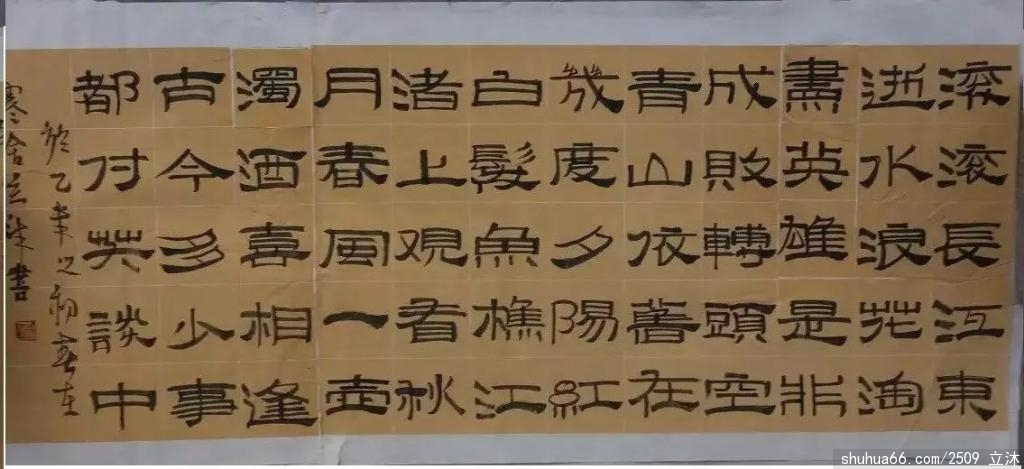 滚滚長江東
逝水浪花淘
盡英雄是非
成敗轉頭空
青山依舊在
幾度夕陽紅
白髮魚樵江
渚上觀看秋
月春風一壺
濁酒喜相逢
古今多少事
都付笑談中
於乙未之初春在
寒舍立沐書
shuhua66.com/2509_立沐